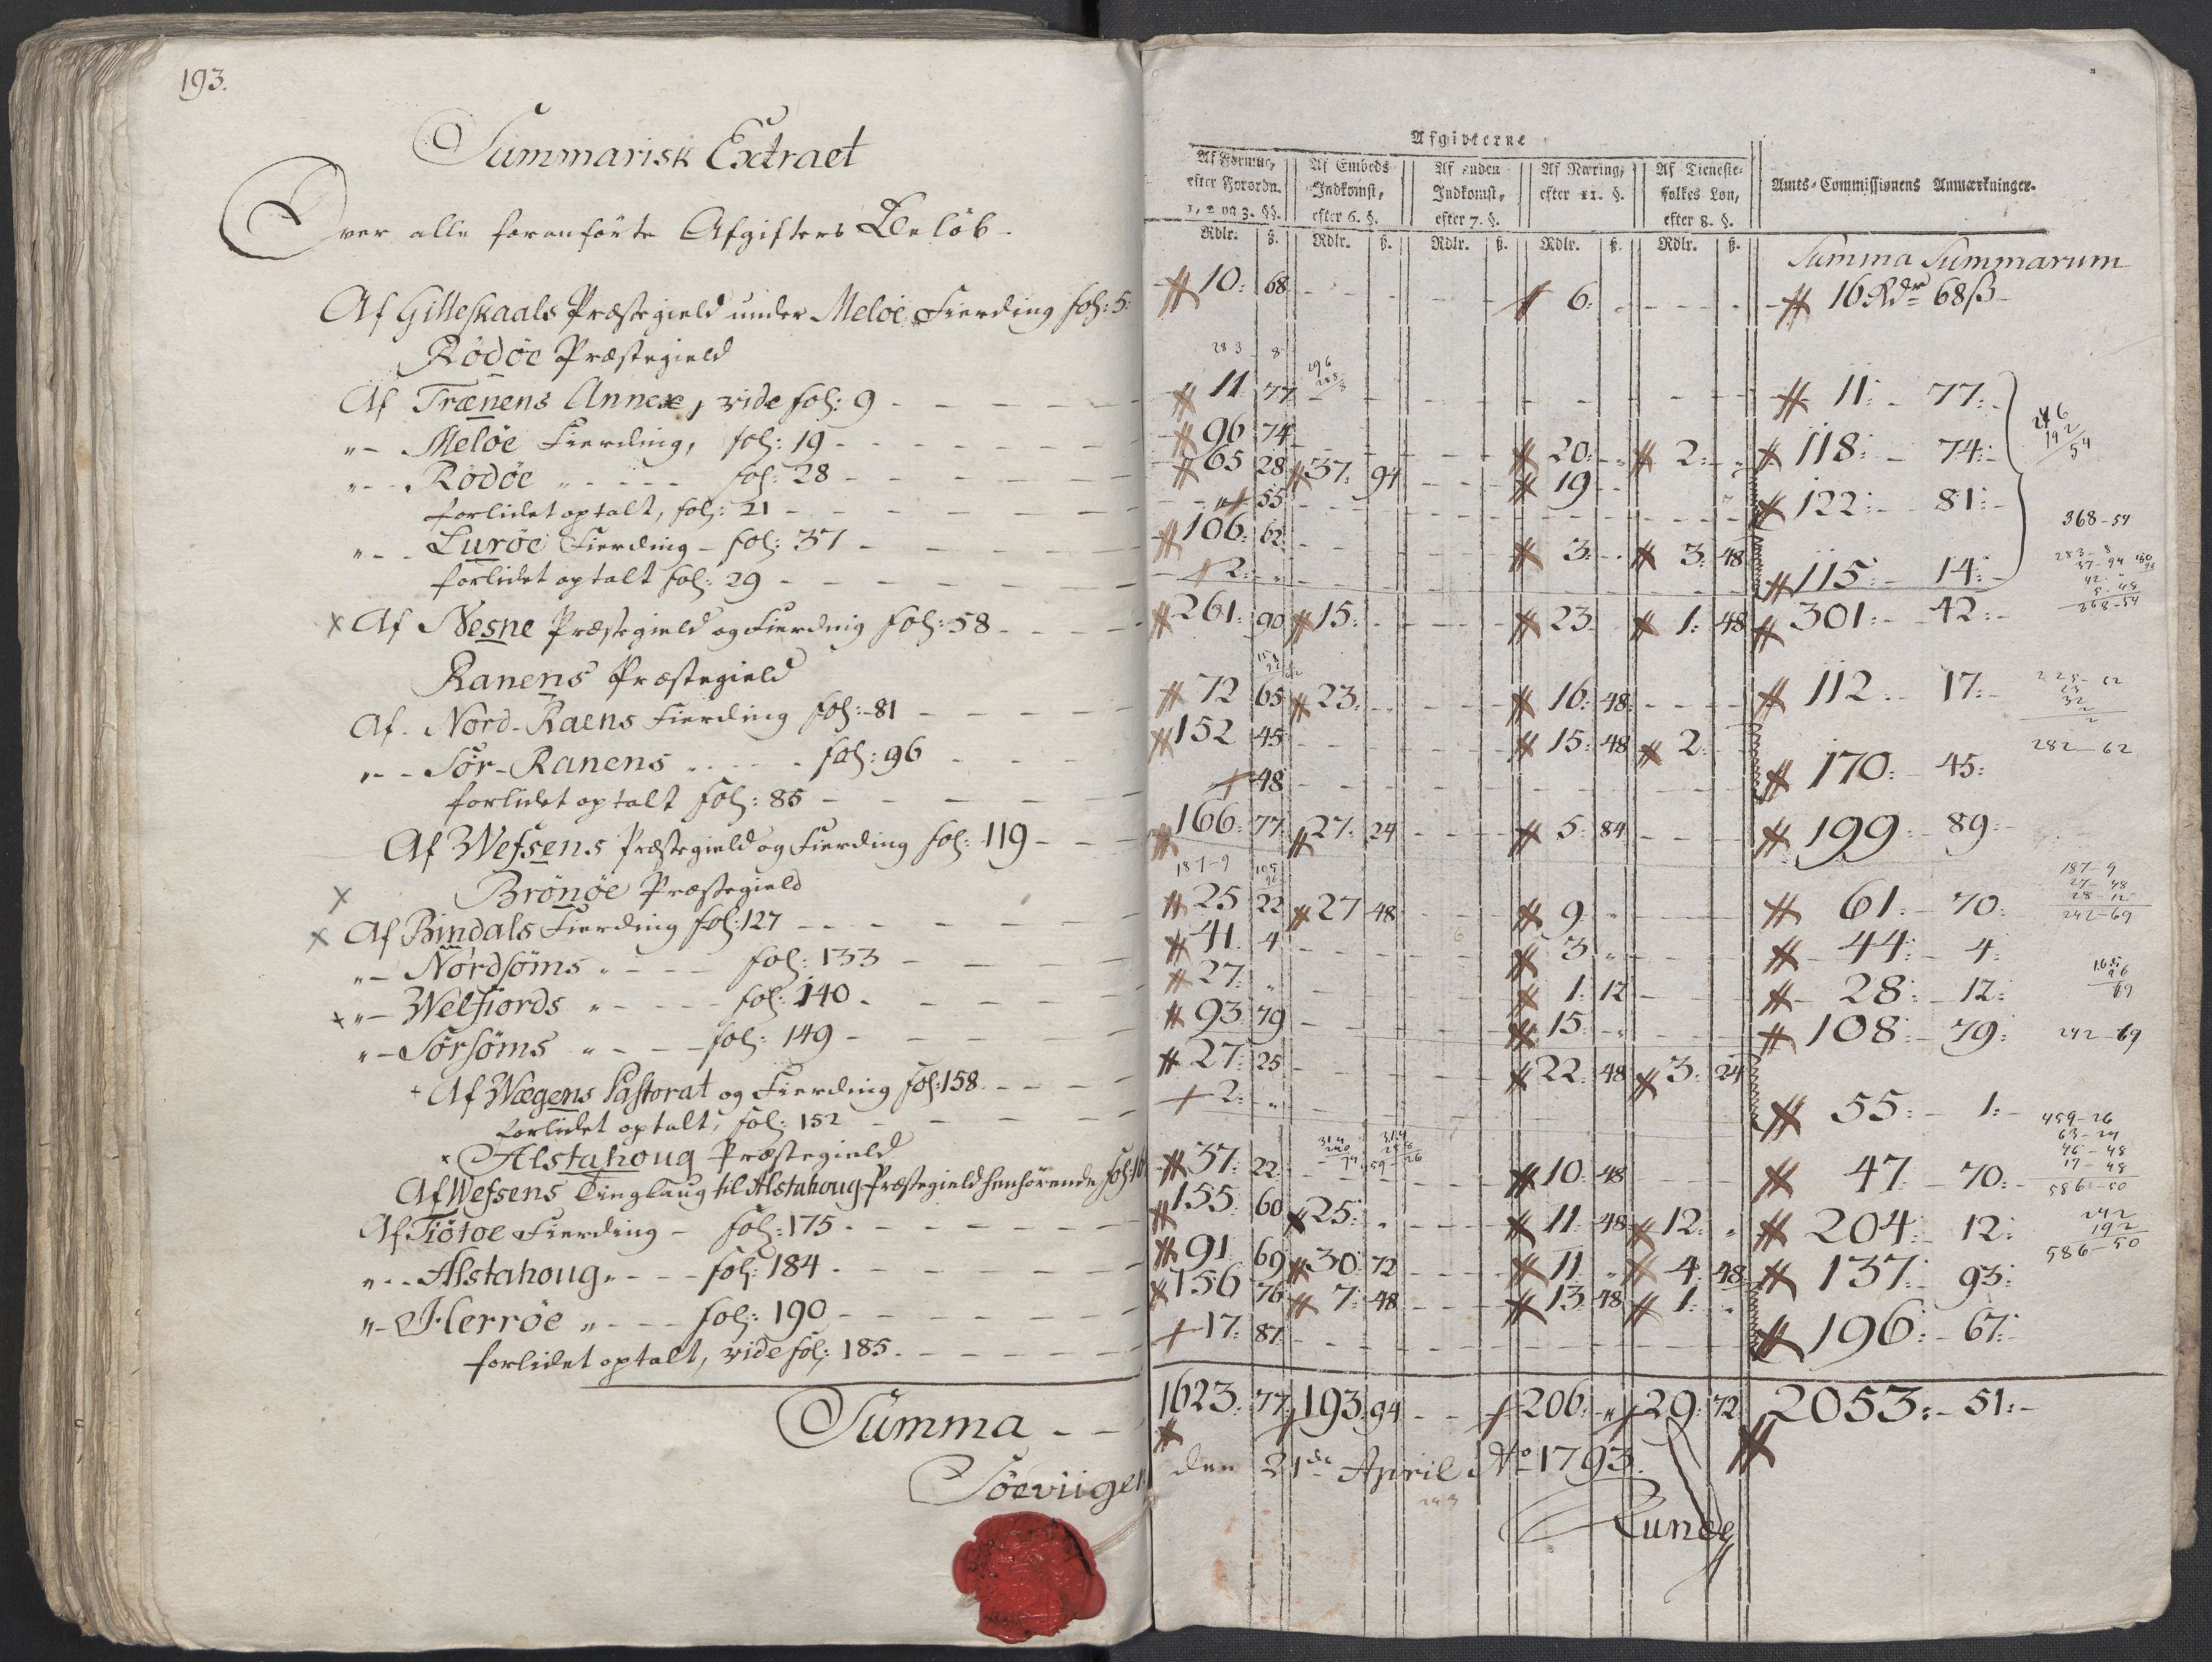 193.
Summarisk Extract
Over alle foranførte Afgifters Beløb.
Af Gilleskaals Præstegield under Meløe Fierding fol: 5:
Rödöe Præstegield
Af Trænens Annex, vide fol: 9
"- Meløe Fierding, fol: 19
"- Rödöe " fol: 28
forlidet optalt, fol: 21
"- Luröe Fierding - fol: 37
forlidet optalt fol: 29
x Af Nesne Præstegield og Fierding fol: 58
Ranens Præstegield
Af Nord-Raens Fierding fol: 81
"- Sör-Ranens fol: 96
forlidet optalt fol: 85
Af Wefsens Præstegield og Fierding fol: 119
x Brönöe Præstegield
x Af Bindals Fierding fol: 127
"- Nordsöms " fol: 133
x "- Welfiords " fol: 140
"- Sörsöms " fol: 149
+ Af Wægens Pastorat og Fierding fol: 158
forlidet optalt, fol: 152
x Alstahoug Præstegield
Af Wefsens Tinglaug til Alstahoug Præstegield henhörende fol: 16
Af Tiötöe Fierding - fol: 175
"- Alstahoug " fol: 184
"- Herröe " fol: 190
forlidet optalt, vide fol: 185
Summa
Söeviigen
Afgivterne
Af Formue, efter Forordn. 1, 2 og 3. §§. Af Embeds Indkomst, efter 6. §. Af anden Indkomst, efter 7. §. Af Næring, efter 11. §. Af Tieneste-folkes Løn, efter 8. §. Amts-Commissionens Anmærkninger.
Rdlr. ß. Rdlr. ß. Rdlr. ß. Rdlr. ß. Rdlr. ß.
Summa Summarum
10: 68 6: 16 Rdr 68 ß
283 8
11 77 11: 77:
96 74 20: 2: 118: 74:
65 28 37: 94 19
55 122: 81:
106: 62 3: 3: 48
2: 115: 14:
261: 90 15: 23 1: 48 301: 42:
72 65 23: 16: 48 112: 17:
152 45 15: 48 2:
48 170: 45:
166: 77 27: 24 5: 84 199: 89:
187-9
25 22 27 48 9 61: 70:
41 4 3 44: 4:
27: " 1: 12 28: 12:
93 79 15 108: 79:
27: 25 22: 48 3: 24
2: " 55: 1:
37: 22 10: 48 47: 70:
155: 60 25: 11: 48 12: " 204: 12:
91 69 30: 72 11 " 4: 48 137: 93:
156 76 7: 48 13: 48 1: "
17: 87 196: 67:
1623: 77 193: 94 206: " 29: 72 2053: 51:
den 21de April Ao 1793.
Lund
246
192
54
368-54
283-8
37-94
42
5-48
368-54
282-62
187-9
27-48
28-12
242-69
165
96
69
242-69
459-26
63-24
46-48
17-48
586-50
242
192
586-50